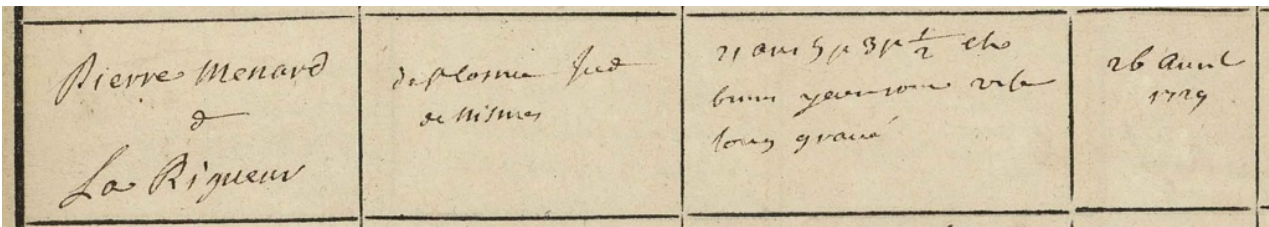 Pierre Menard
d
La Rigueur
de Jud
de Nismes
21 ans 5 p 3 p 1/2 ch
bruns yeux vis
long gravé
26 Avril
1729